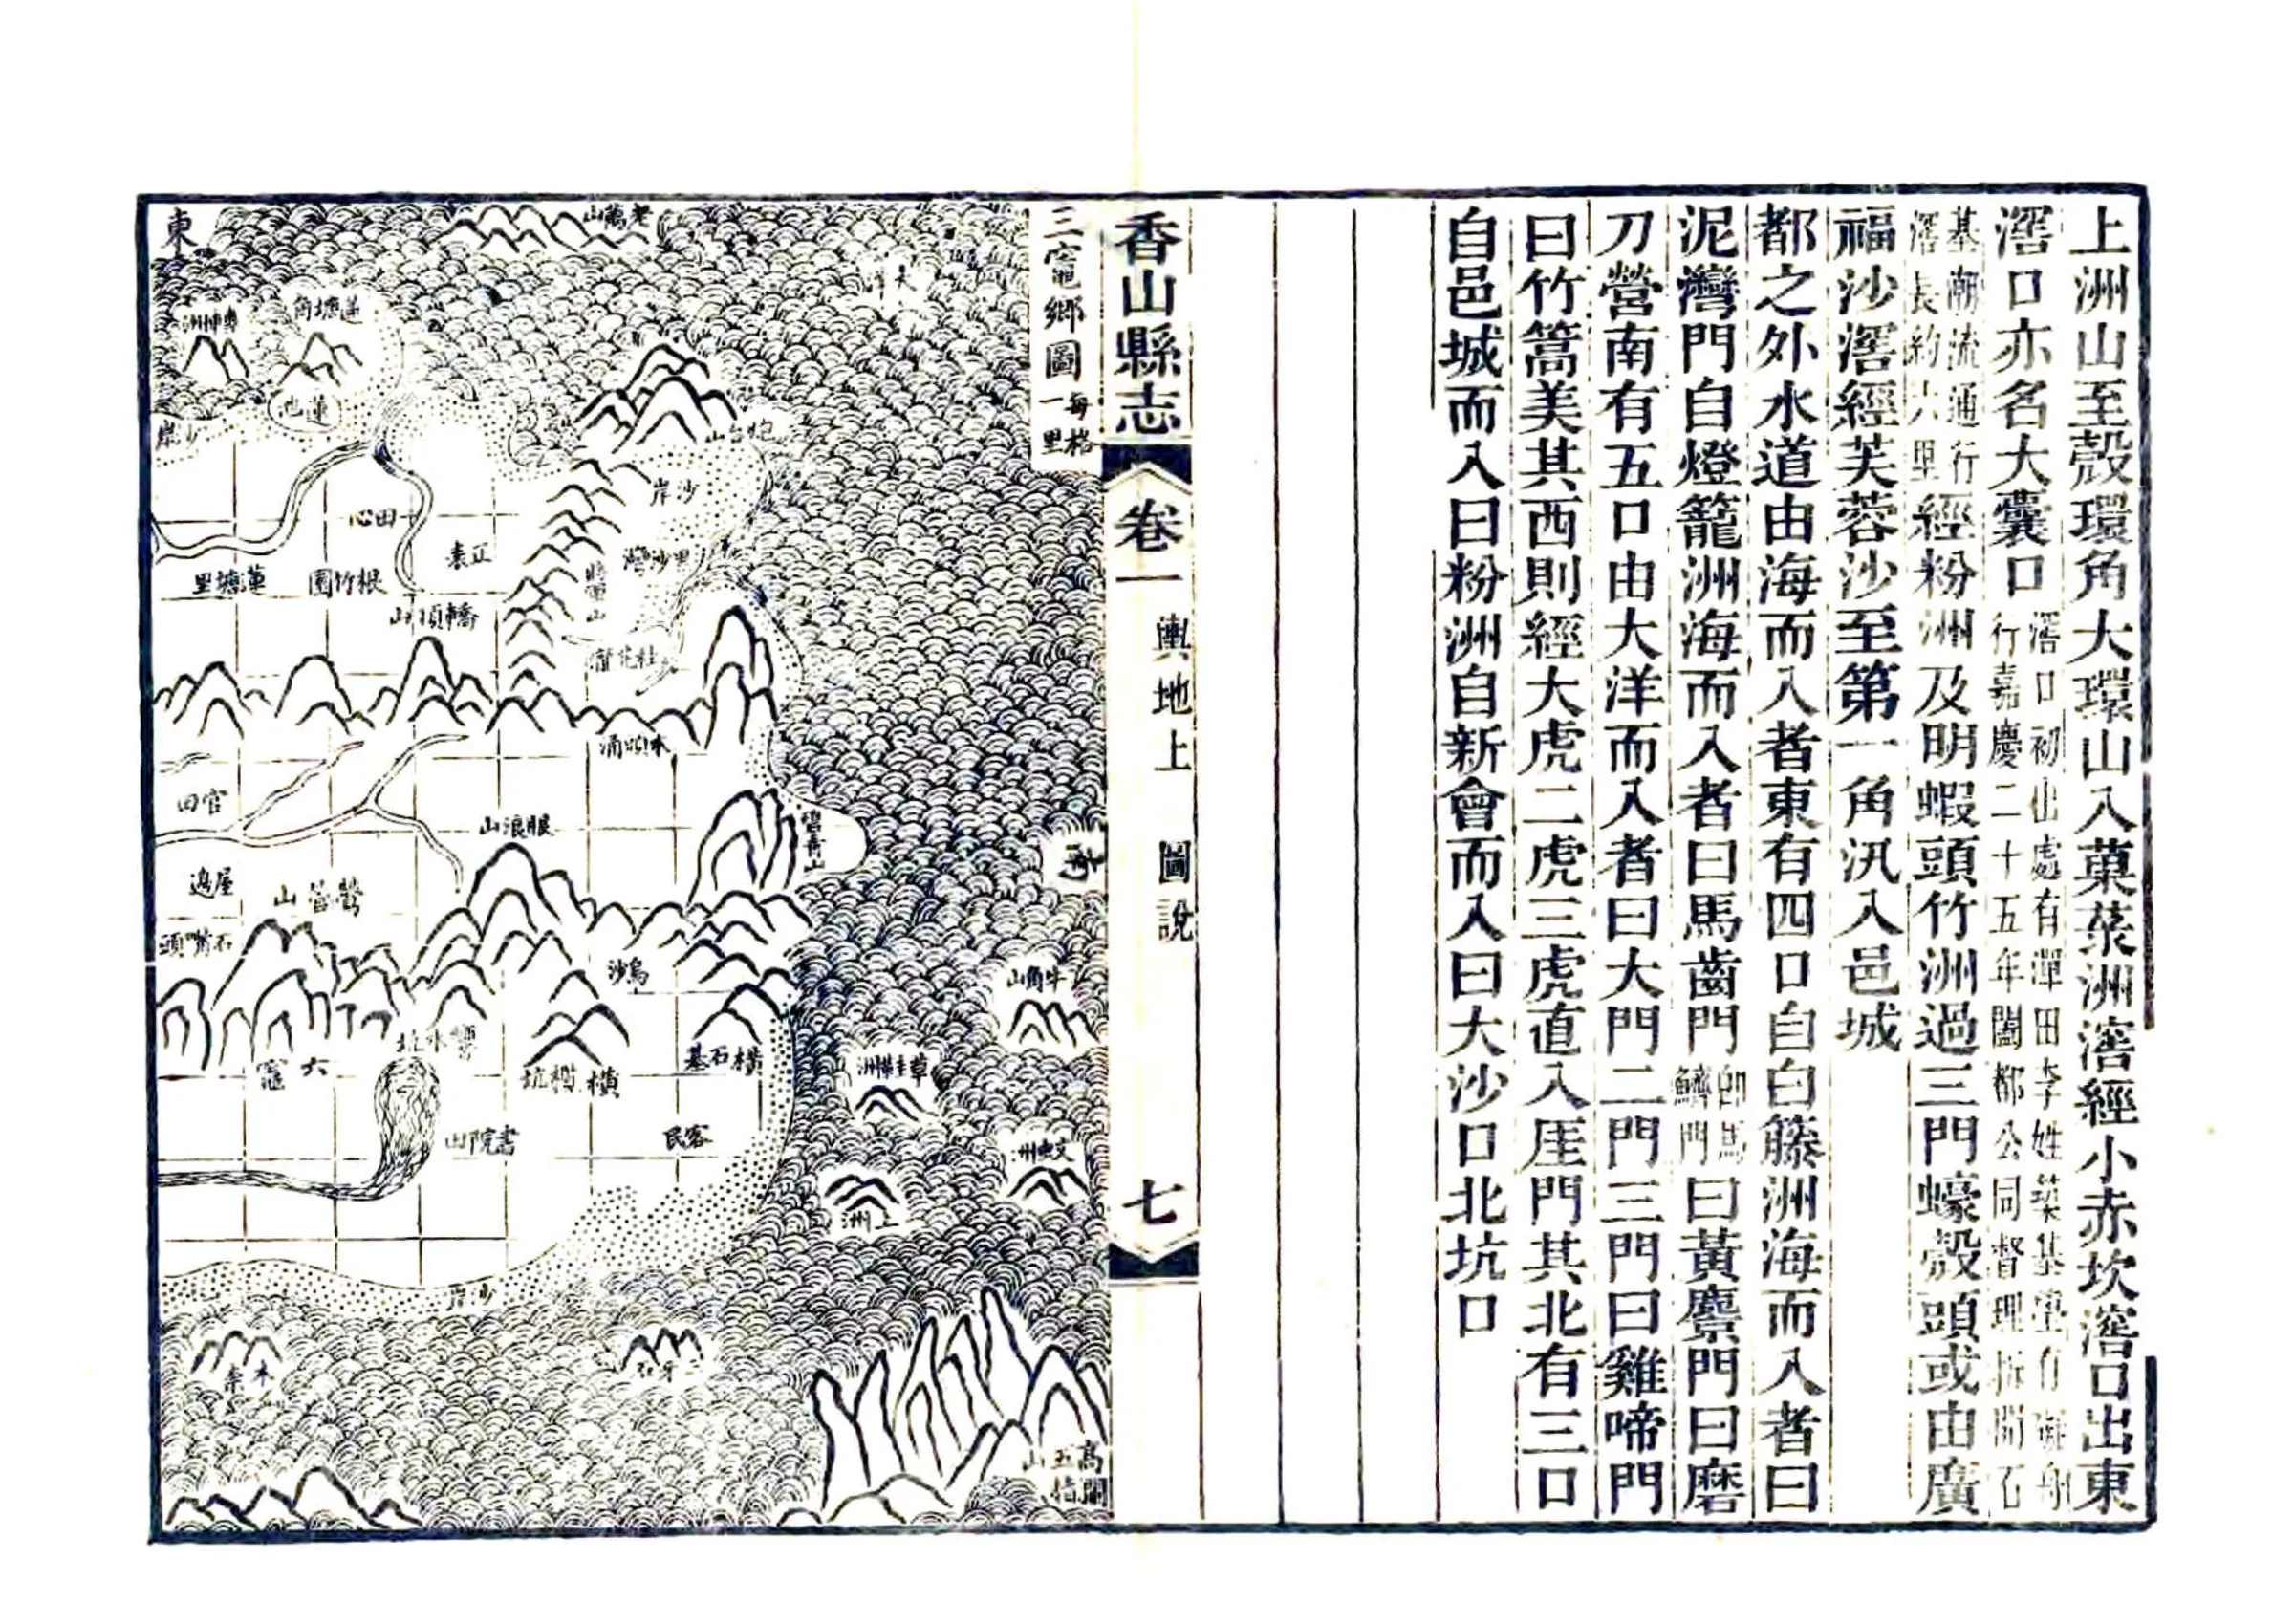 上洲山至殼環角大環山入菓蔡洲滘經小赤坎滘口出東
滘口亦名大囊口
滘口初出處有潭田李姓築基
行嘉慶二十五年闔都公同督理拆開石
基潮流通行
滘長約六里
經粉洲及明蝦頭竹洲過三門蠔殼頭或由廣
福沙滘經芙蓉沙至第一角汛入邑城
都之外水道由海而入者東有四口自白藤洲海而入者曰
泥灣門自燈籠洲海而入者曰馬齒門
即馬
鱭門
曰黃麖門曰磨
刀營南有五口由大洋而入者曰大門二門三門曰雞啼門
曰竹篙美其西則經大虎二虎三虎直入厓門其北有三口
自邑城而入曰粉洲自新會而入曰大沙口北坑口
香山縣志
卷一
輿地上
圖說
七
三竈鄉圖
每格
一里
老萬山
大洋
東
蓮塘角
蓮池
沙岸
炮台山
沙岸
黑沙灣
田心
正表
根竹園
蓮塘里
轎頂山
木頭涌
官田
眼浪山
屋邊
鶯管山
石嘴頭
烏沙
牛角山
草鞋洲
橫石基
橫櫊坑
六竈
書院田
客民
蚊洲
上洲
海
沙岸
二牙石
高闌
五指
山